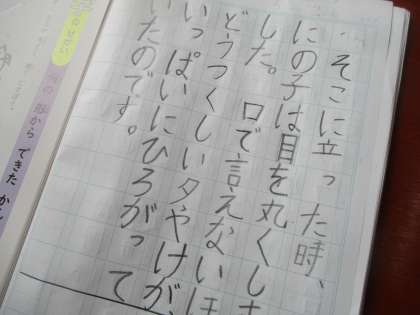 そこに立った時、
にの子は目を丸くしま
した。口で言えないほ
どうつくしい夕やけが、
いっぱいにひろがって
いたのです。
の形からできたかん